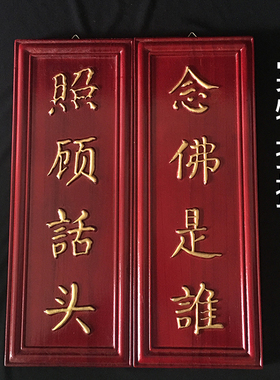 念佛是誰
照顾話头